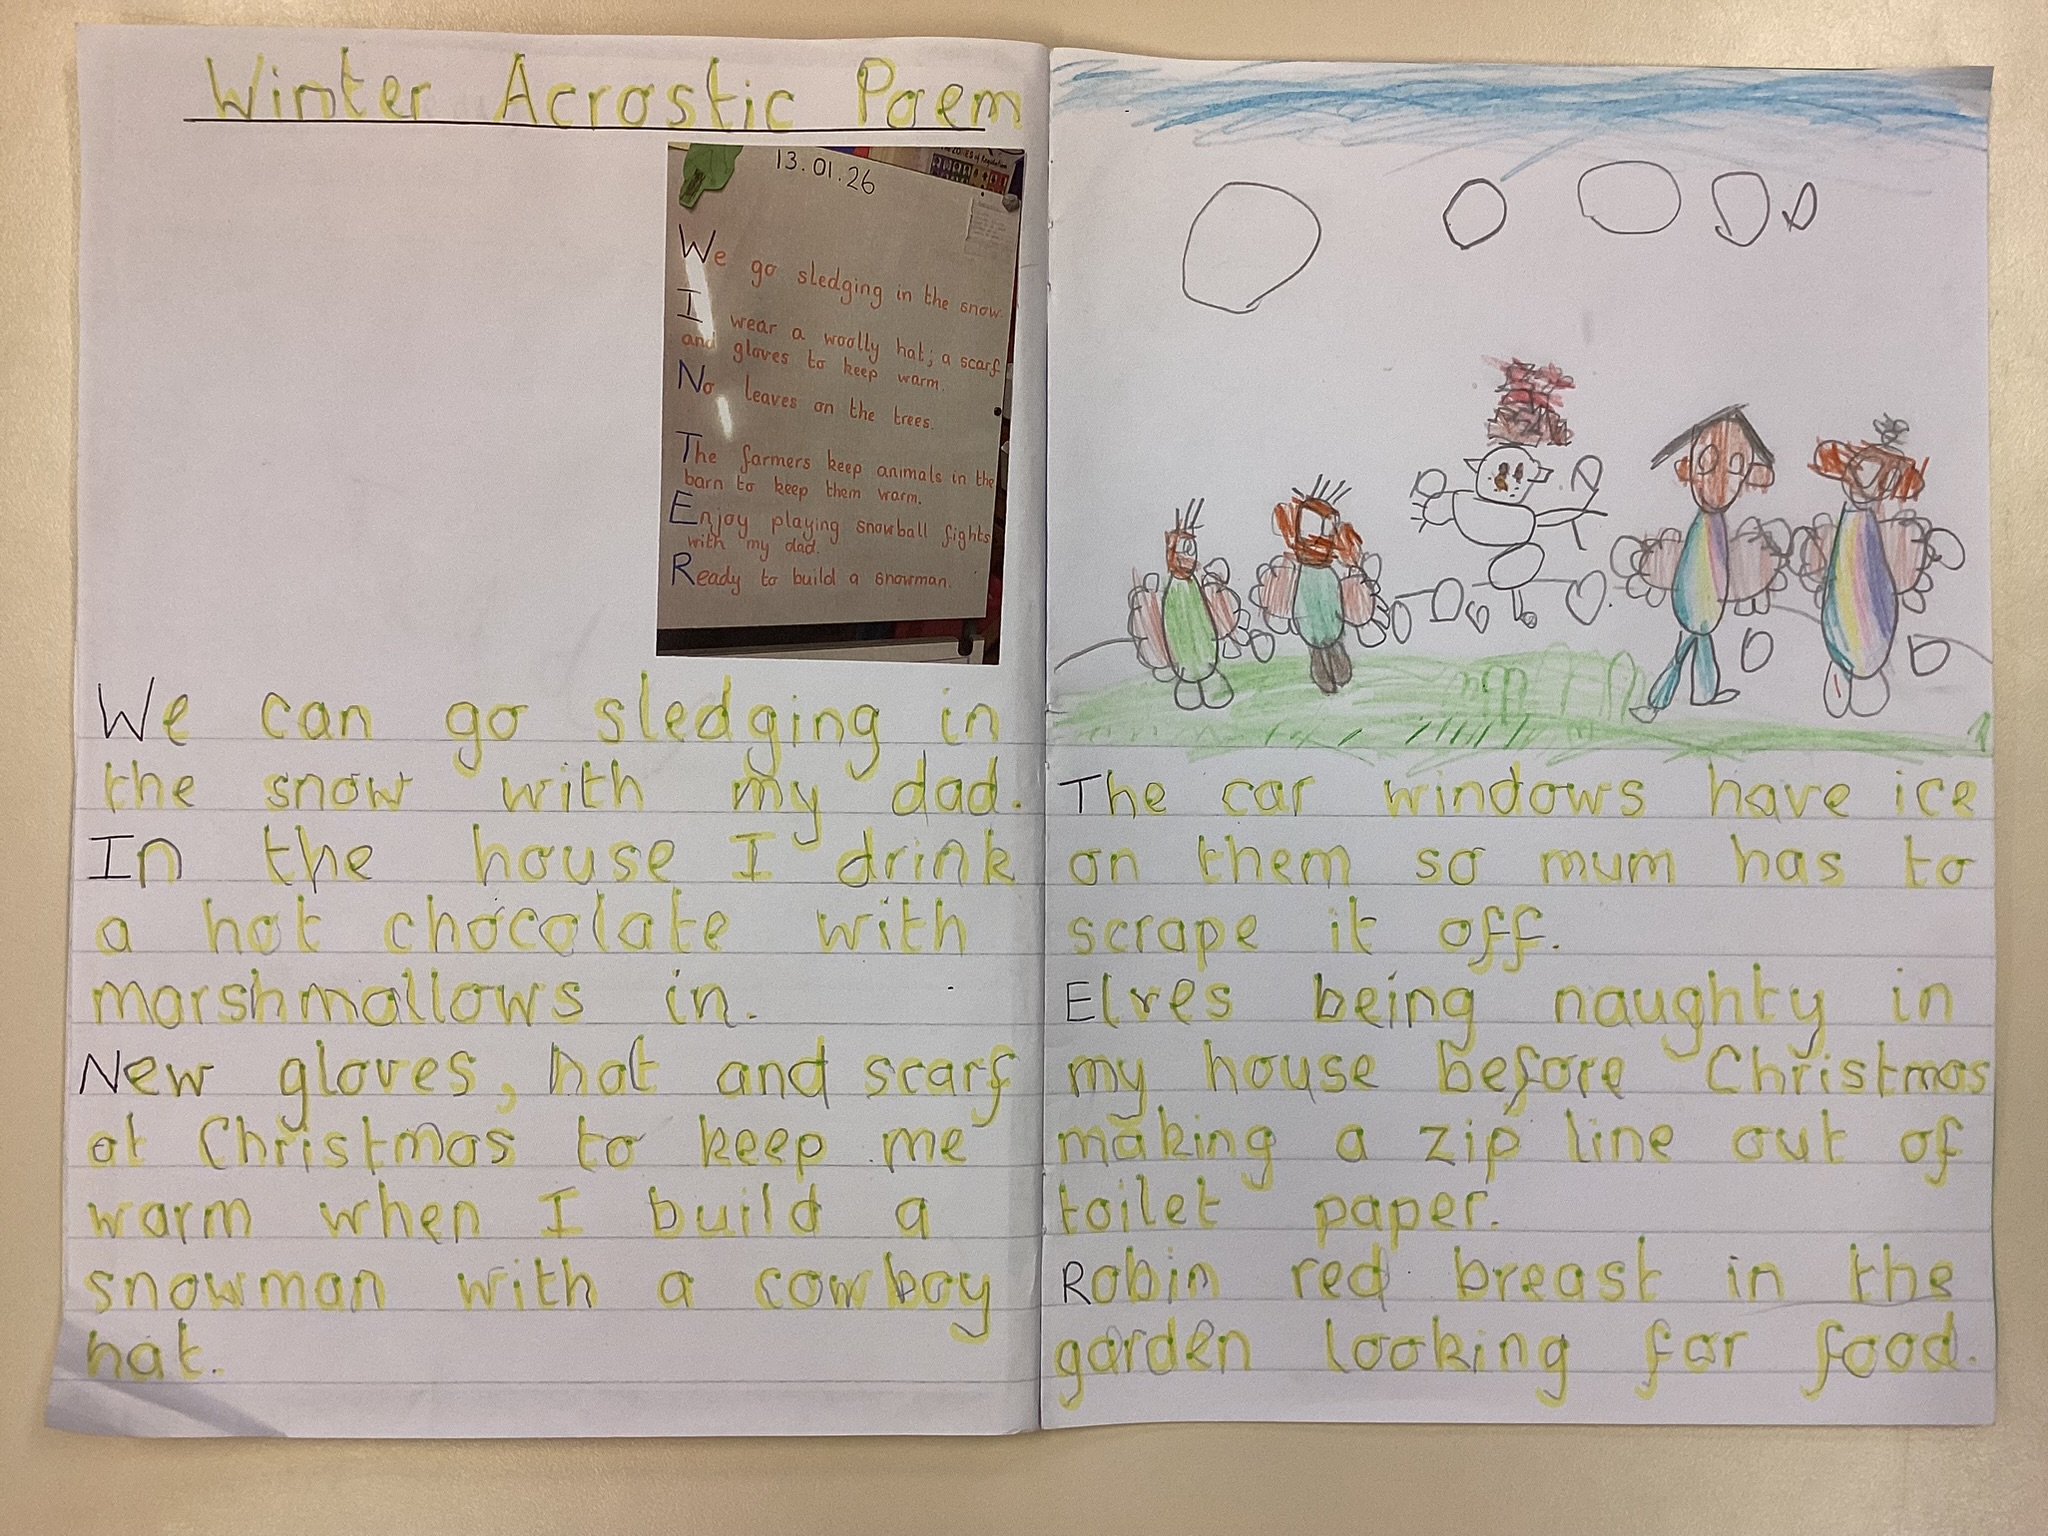 Winter Acrostic Poem
13.01.26
We go sledging in the snow.
I wear a woolly hat; a scarf
and gloves to keep warm.
No leaves on the trees.
The farmers keep animals in the
barn to keep them warm.
Enjoy playing snowball fights
with my dad.
Ready to build a snowman.
We can go sledging in
the snow with my dad.
In the house I drink
a hot chocolate with
marshmallows in.
New gloves, hat and scarf
at Christmas to keep me
warm when I build a
snowman with a cowboy
hat.
The car windows have ice
on them so mum has to
scrape it off.
Elves being naughty in
my house before Christmas
making a zip line out of
toilet paper.
Robin red breast in the
garden looking for food.